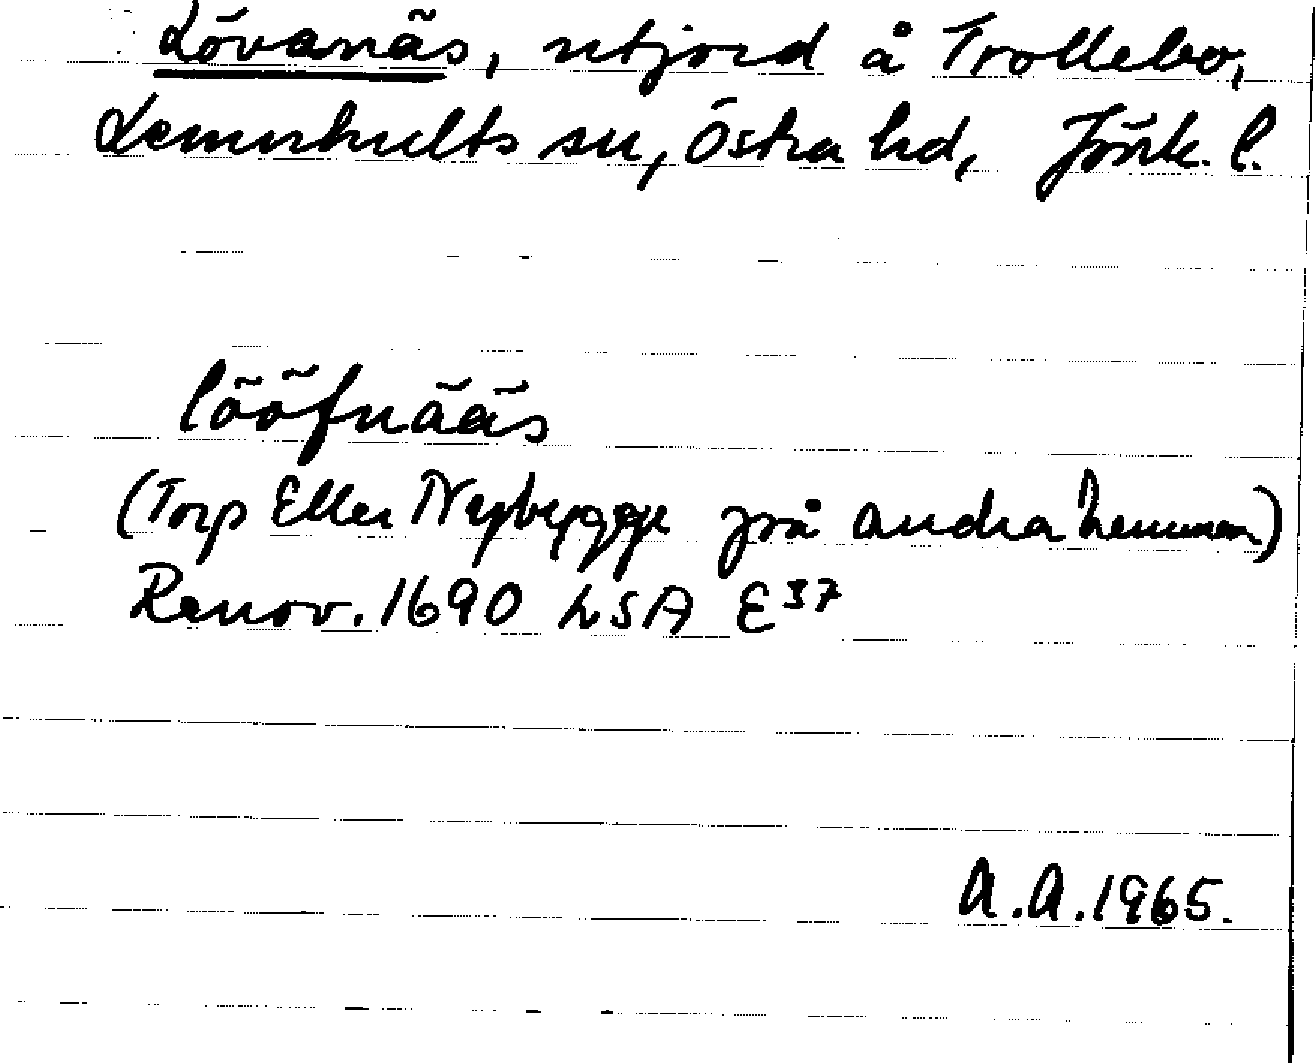 Lövanäs, utjord å Trollebo,
Lemnhults sn, Östra hd, Jönk. l.
lööfnääs
(Torp Eller Nybygge på andra hemman)
Renov. 1690 LSA E37
A.A. 1965.